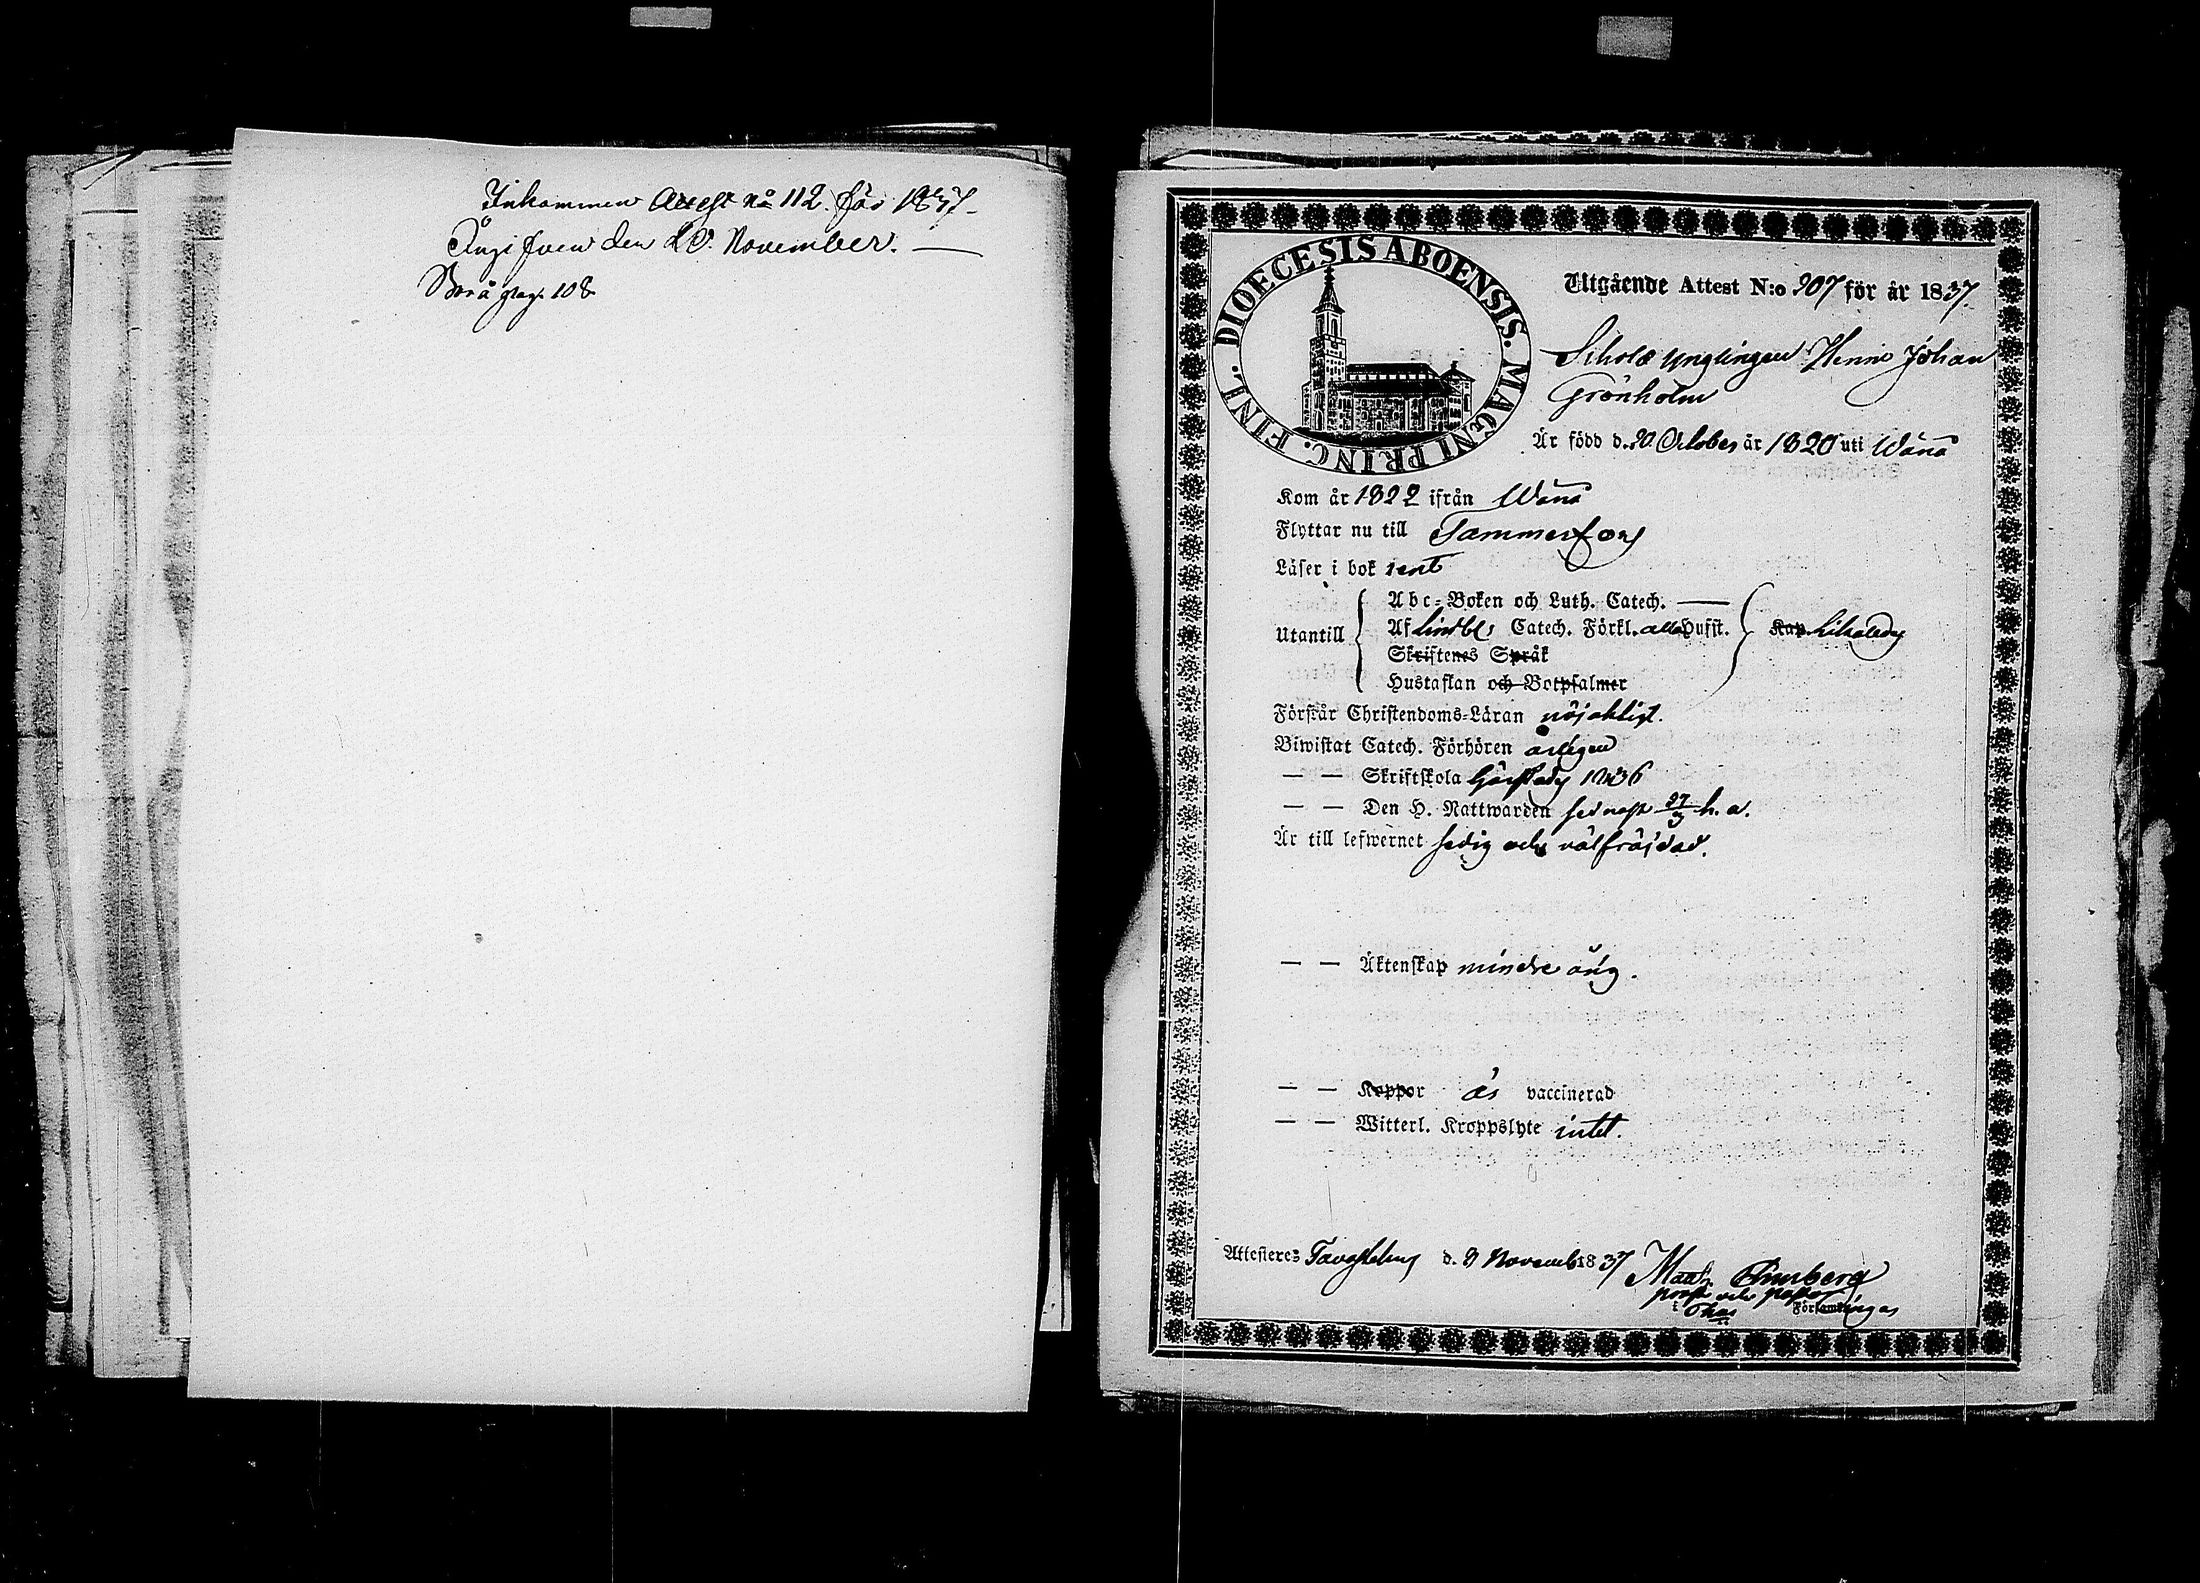 Inkommen Attest No 112. för 1837.
Ångifven den 20. November. —
pag. 108
DIOECESIS ABOENSIS. MAGNI PRINC. FINL.
Utgående Attest N:o 207 för år 1837.
Schole ynglingen Henric Johan
Grönholm
Är född d. 20 October år 1820 uti Wånå
Kom år 1822 ifrån Wånå
Flyttar nu till Tammerfors
Läser i bok rent
Utantill
Abc-Boken och Luth. Catech. —
Af Lindbl: Catech. Förkl. alla Hufst.
Skriftenes Språk
Hustaflan och Botpsalmer
Kap.
Förstår Christendoms-Läran nöjaktigt.
Biwistat Catech. Förhören årligen
— — Skriftskola 1836
— — Den H. Nattwarden sednast 27/3 h. a.
Är till lefwernet sedig och välfräjdad.
— — Äktenskap mindre årig.
— — Koppor är vaccinerad
— — Witterl. Kroppslyte intet.
Attesteres Tavastehus d. 9 Novemb 1837
prost och pastor
i Församlingar